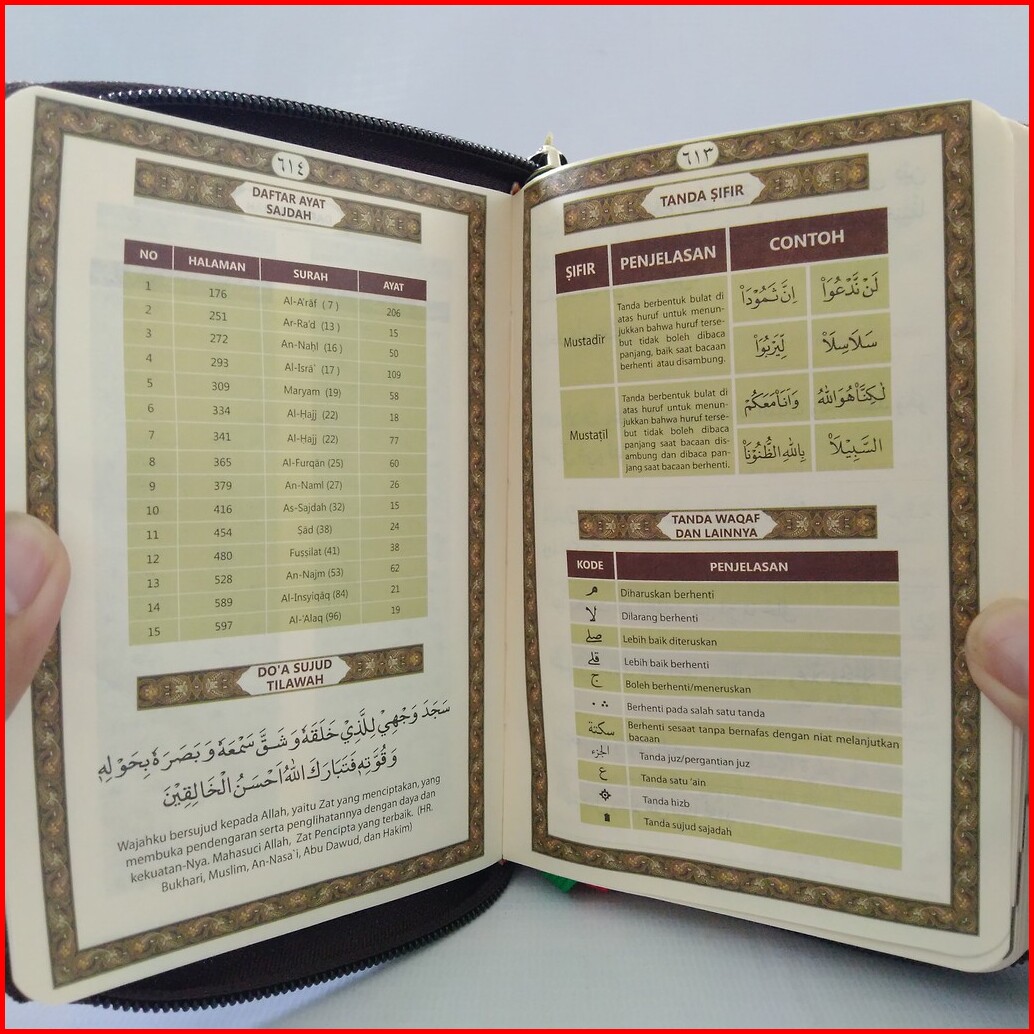 ٦١٤
DAFTAR AYAT
SAJDAH
NO HALAMAN SURAH AYAT
1 176 Al-A'rāf ( 7 ) 206
2 251 Ar-Ra'd (13 ) 15
3 272 An-Naḥl (16 ) 50
4 293 Al-Isrā` (17 ) 109
5 309 Maryam (19) 58
6 334 Al-Ḥajj (22) 18
7 341 Al-Ḥajj (22) 77
8 365 Al-Furqān (25) 60
9 379 An-Naml (27) 26
10 416 As-Sajdah (32) 15
11 454 Ṣād (38) 24
12 480 Fuṣṣilat (41) 38
13 528 An-Najm (53) 62
14 589 Al-Insyiqāq (84) 21
15 597 Al-'Alaq (96) 19
DO'A SUJUD
TILAWAH
سَجَدَ وَجْهِيَ لِلَّذِيْ خَلَقَهُ وَشَقَّ سَمْعَهُ وَبَصَرَهُ بِحَوْلِهِ
وَقُوَّتِهِ فَتَبَارَكَ اللهُ اَحْسَنُ الْخَالِقِيْنَ
Wajahku bersujud kepada Allah, yaitu Zat yang menciptakan, yang
membuka pendengaran serta penglihatannya dengan daya dan
kekuatan-Nya. Mahasuci Allah, Zat Pencipta yang terbaik. (HR.
Bukhari, Muslim, An-Nasa`i, Abu Dawud, dan Hakim)
٦١٣
TANDA ṢIFIR
ṢIFIR PENJELASAN CONTOH
Mustadīr
Tanda berbentuk bulat di
atas huruf untuk menun-
jukkan bahwa huruf terse-
but tidak boleh dibaca
panjang, baik saat bacaan
berhenti atau disambung.
اِنَّ ثَمُوْدَا۟ لَنْ نَّدْعُوَا۟
لِّيَرْبُوَا۟ سَلَاسِلَا۟
Mustaṭīl
Tanda berbentuk bulat di
atas huruf untuk menun-
jukkan bahwa huruf terse-
but tidak boleh dibaca
panjang saat bacaan dis-
ambung dan dibaca pan-
jang saat bacaan berhenti.
وَاَنَا۠ مَعَكُمْ لٰكِنَّا۠ هُوَ اللّٰهُ
بِاللّٰهِ الظُّنُوْنَا۠ السَّبِيْلَا۠
TANDA WAQAF
DAN LAINNYA
KODE PENJELASAN
م Diharuskan berhenti
لا Dilarang berhenti
صلى Lebih baik diteruskan
قلى Lebih baik berhenti
ج Boleh berhenti/meneruskan
∴ Berhenti pada salah satu tanda
سكتة Berhenti sesaat tanpa bernafas dengan niat melanjutkan
bacaan
الجزء Tanda juz/pergantian juz
ع Tanda satu 'ain
Tanda hizb
Tanda sujud sajadah